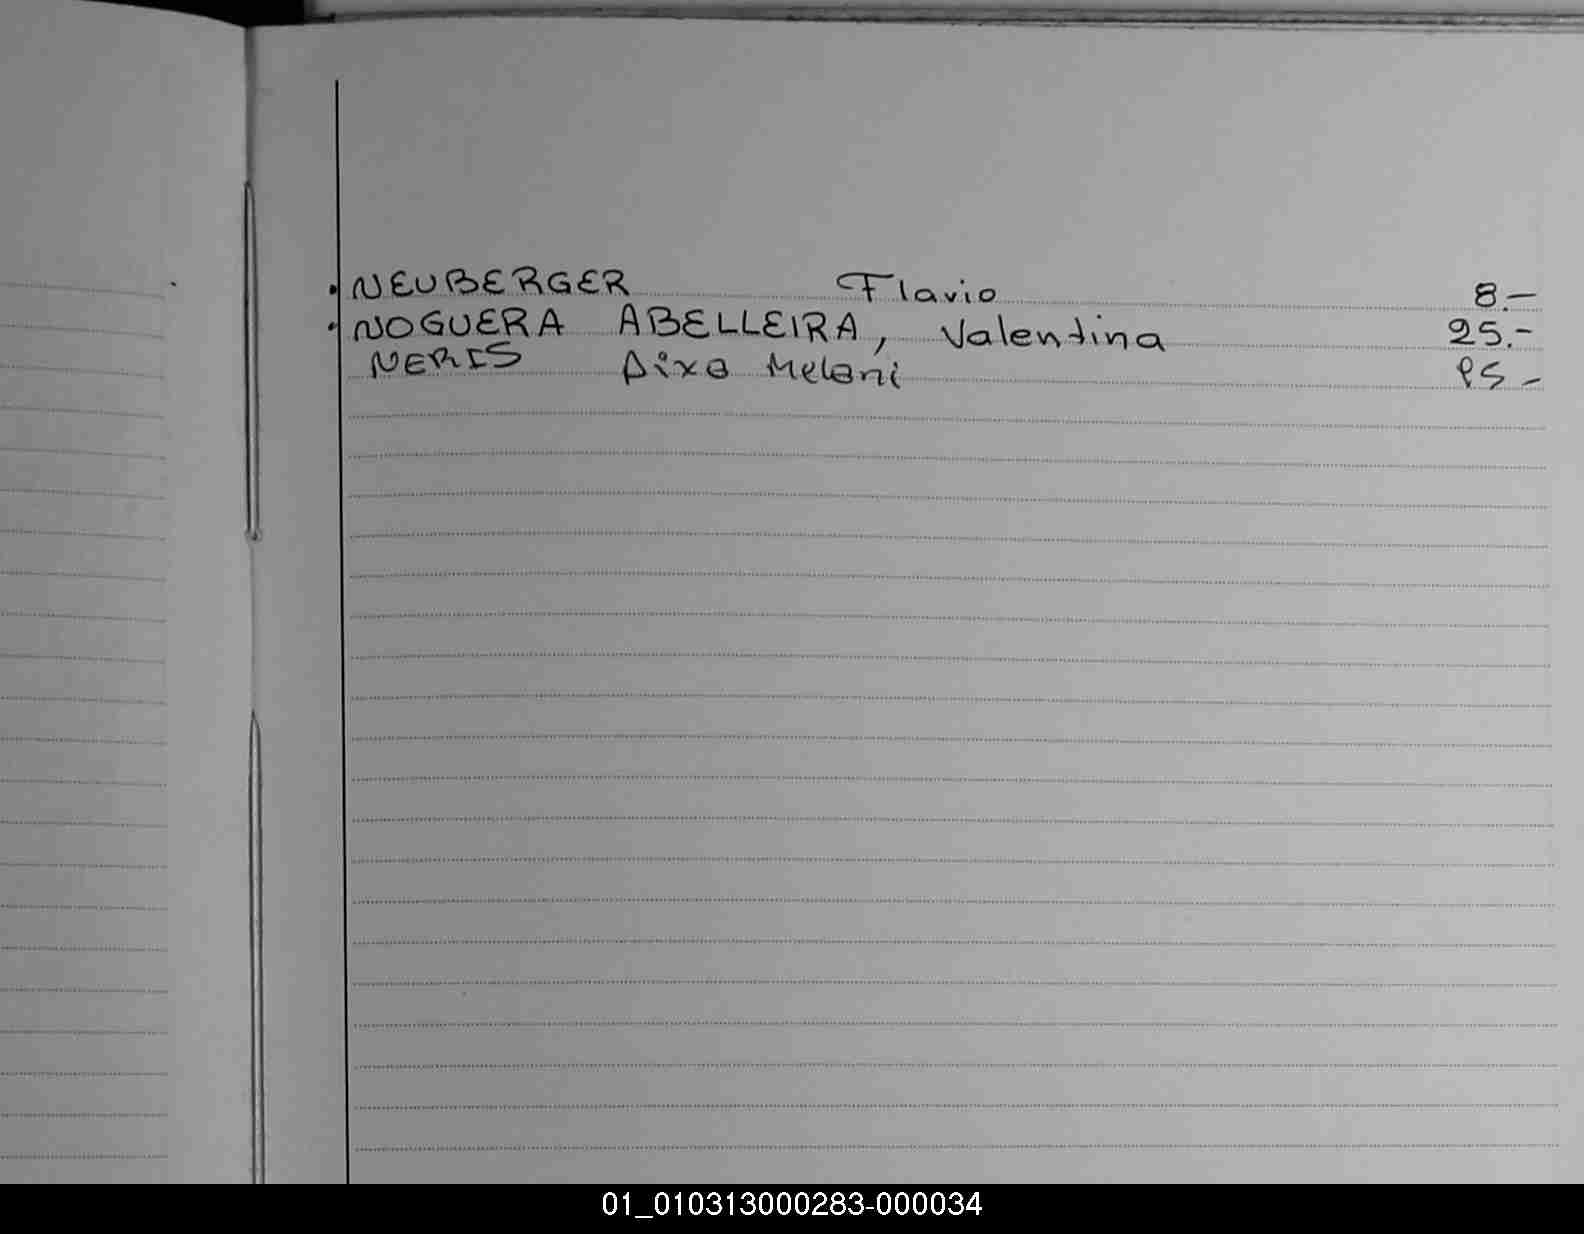 . NEUBERGER Flavio 8.-
. NOGUERA ABELLEIRA, Valentina 25.-
NERIS Aixa Melani -
01_010313000283-000034